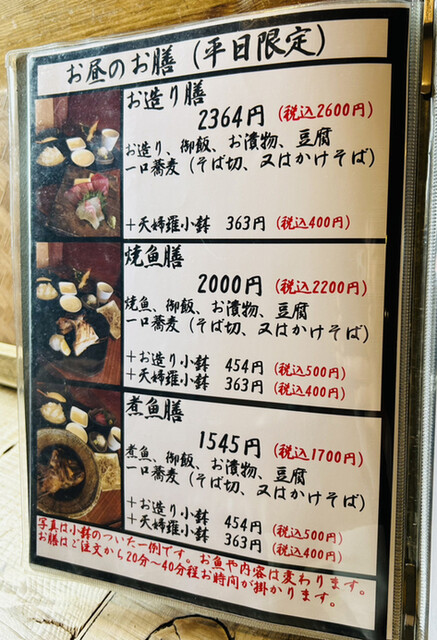 お昼のお膳（平日限定）
お造り膳
2364円（税込2600円）
お造り、御飯、お漬物、豆腐
一口蕎麦（そば切、又はかけそば）
＋天婦羅小鉢 363円（税込400円）
焼魚膳
2000円（税込2200円）
焼魚、御飯、お漬物、豆腐
一口蕎麦（そば切、又はかけそば）
＋お造り小鉢 454円（税込500円）
＋天婦羅小鉢 363円（税込400円）
煮魚膳
1545円（税込1700円）
煮魚、御飯、お漬物、豆腐
一口蕎麦（そば切、又はかけそば）
＋お造り小鉢 454円（税込500円）
＋天婦羅小鉢 363円（税込400円）
写真は小鉢のついた一例です。お魚や内容は変わります。
お膳はご注文から20分～40分程お時間が掛かります。